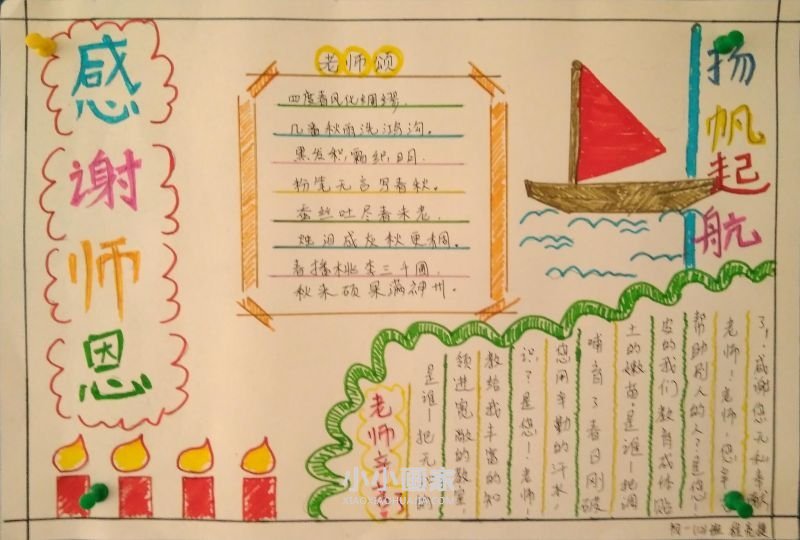 感谢师恩
老师颂
四度春风化绸缪。
几番秋雨洗鸿沟。
黑发积霜织日月。
粉笔无言写春秋。
蚕丝吐尽春未老。
烛泪成灰秋更稠。
春播桃李三千圃
秋来硕果满神州。
扬帆起航
老师辛
是谁!把无
领进宽敞的教室!
教给我丰富的知
识?是您!老师!
您用辛勤的汗水,
哺育了春日刚破
土的嫩苗。是谁!把调
皮的我们教育成体贴
帮助别人的人?是您!
老师!老师,您辛
了!感谢您无私奉献
小小画家
XIAOXIAOHUAJIA.COM